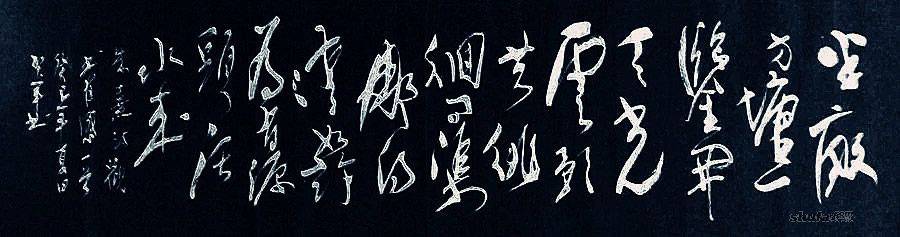 半畝
方塘一
鑑開
天光
雲影
共徘
徊問渠
那得
清如許
為有源
頭活
水來
朱熹詩觀
書有感一首
癸巳年夏日